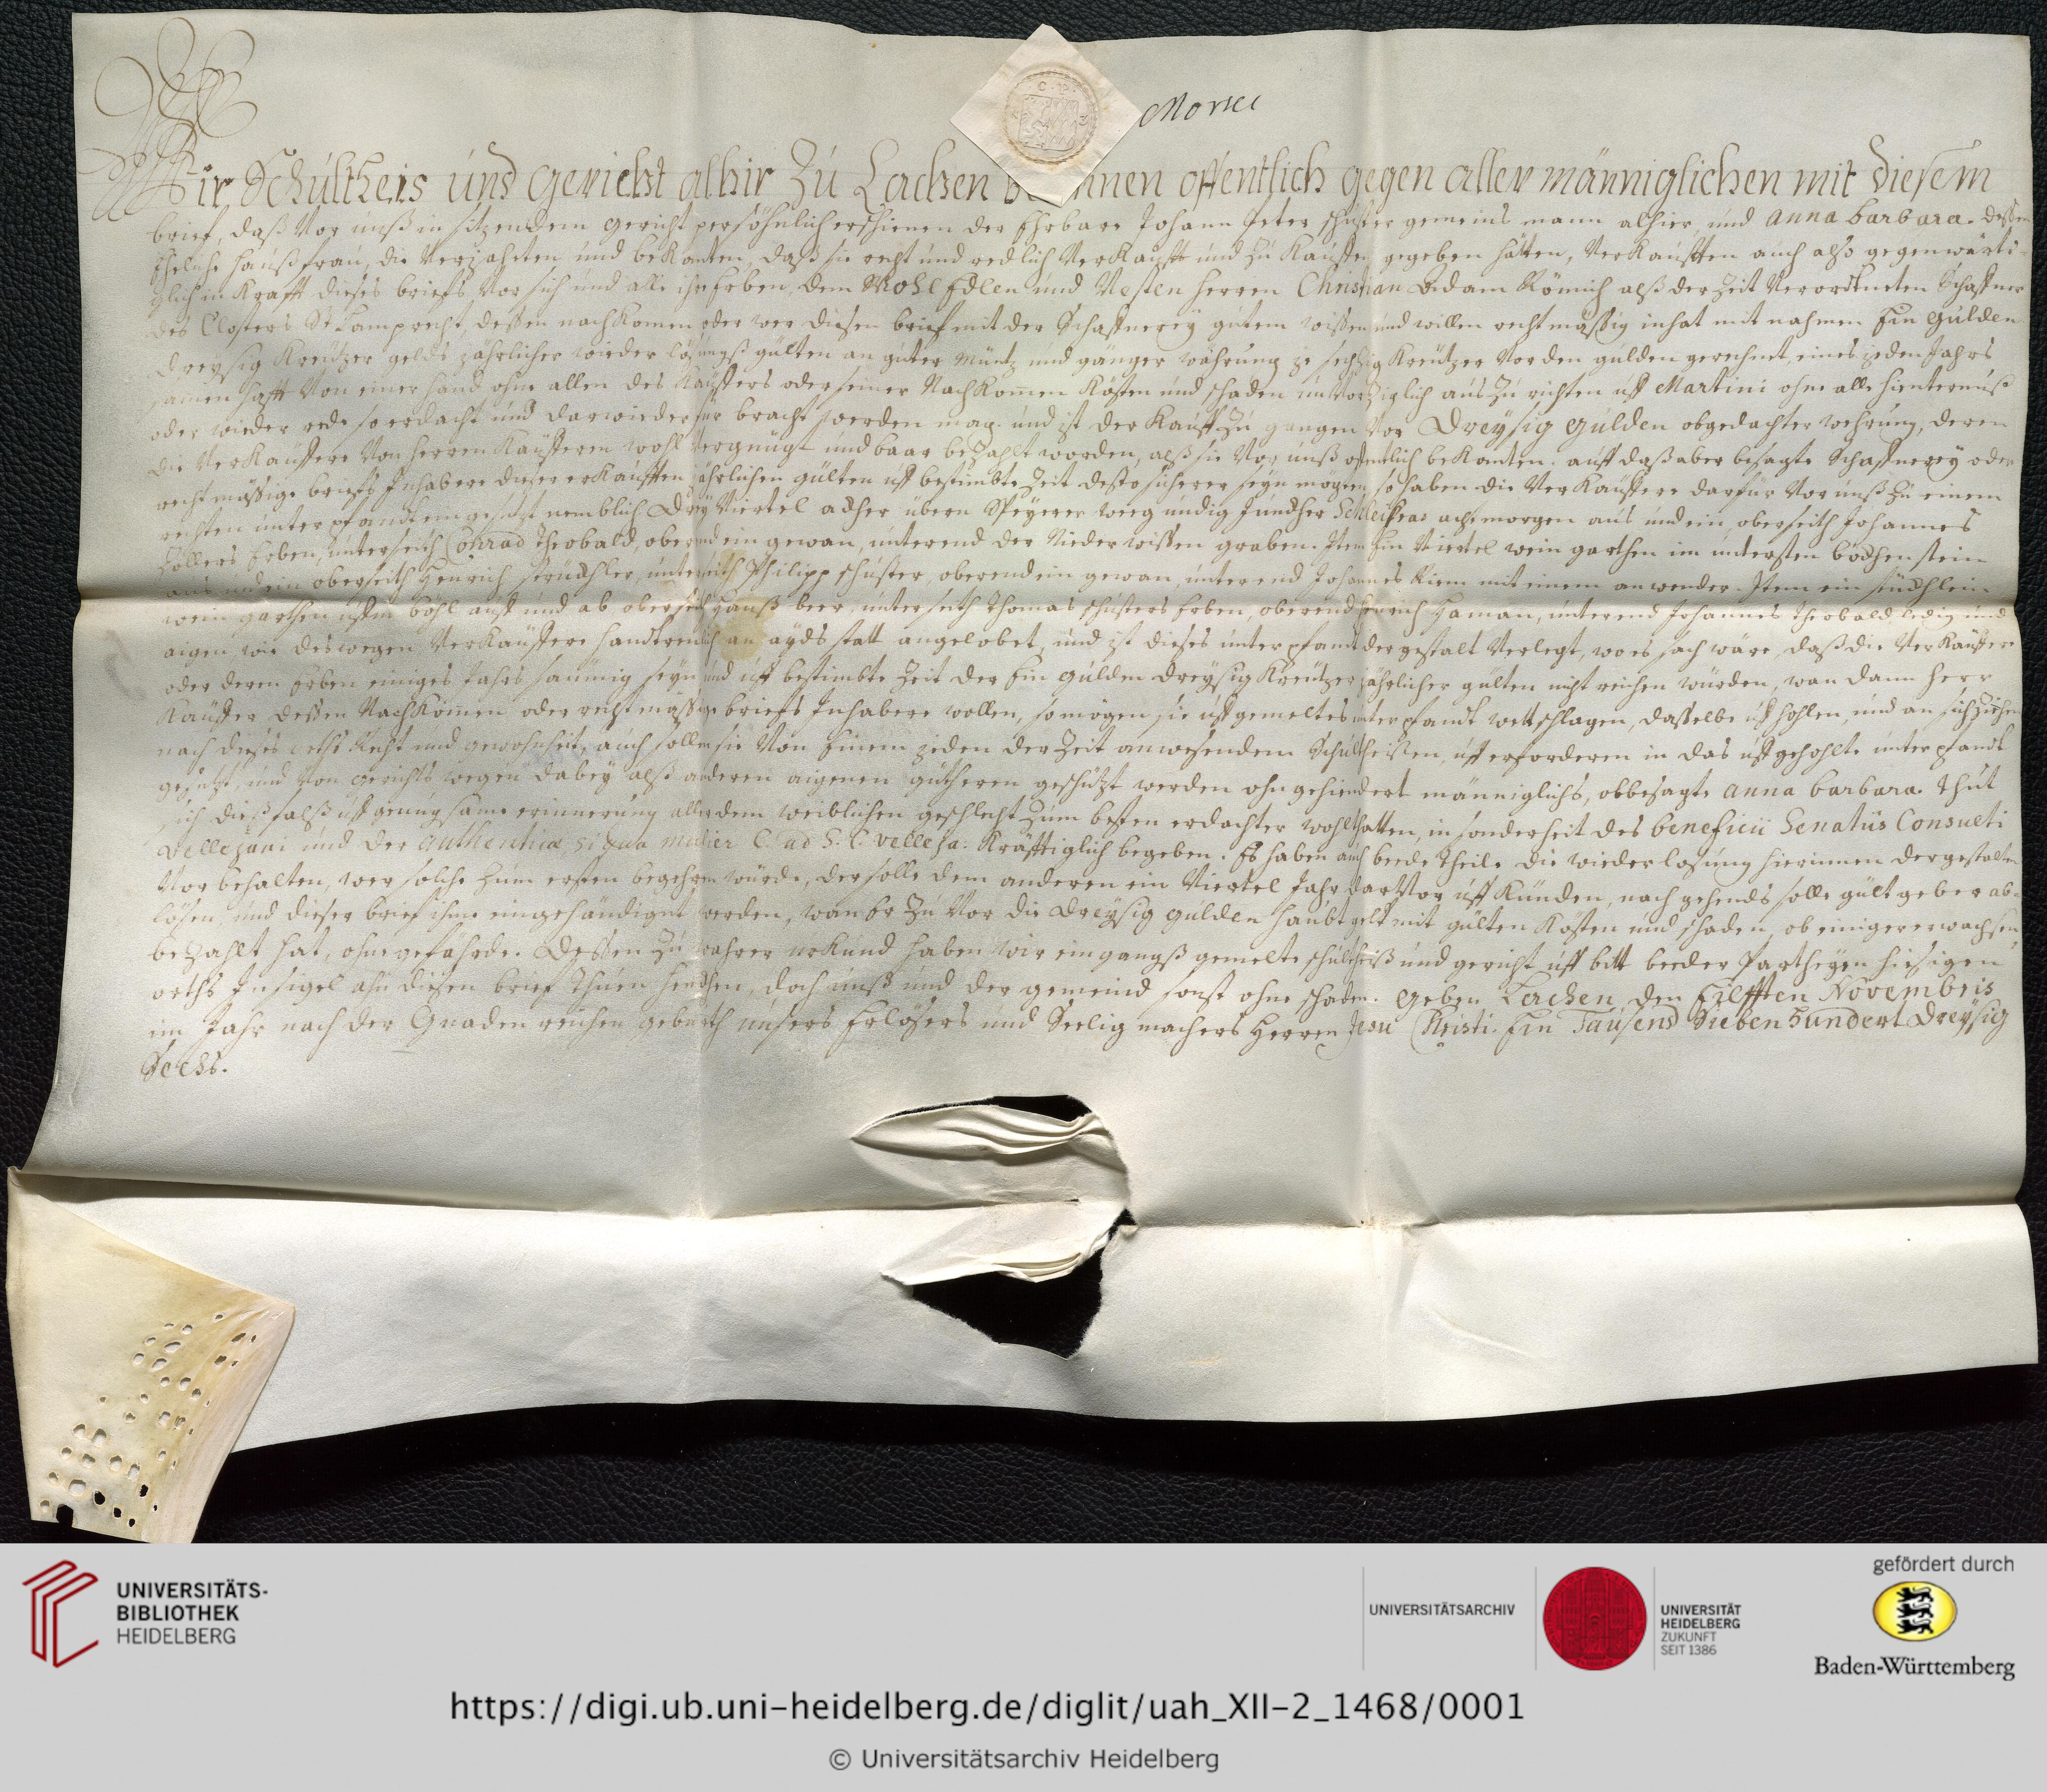 C. P.
Morsci
Wir Schultheis und Gericht alhir Zu Lachen be nnen offentlich gegen aller männiglichen mit diesem
brief, daß Vor unß in sitzendem gericht persöhnlich erschienen der Ehrbare Johann Peter Schuster gemeins mann alhier, und Anna barbara. deßen
Eheliche haußfrau, die Verjaheten und bekanten, daß sie recht und redlich Verkaufft und zu kauffen gegeben hätten, Verkaufften auch alß gegenwärti-
glich in Krafft dieses briefs, Vor sich und alle ihr Erben, dem WohlEdlen und Vesten Herren Christian Adam Römich alß der Zeit Verordtneten Schaffner
des Closters St Lamprecht, deßen nachkomen oder wer diesen brief mit der Schaffnerey gutem wißen und willen rechtmäßig inhat mit nahmen Ein gulden
dreysig Kreutzer gelds jährlicher wieder lösungß gülten an guter Müntz und gänger währung je sechzig Kreutzer Vor den gulden gerechnet, eines jeden Jahrs
samen hafft Von einer hand ohne allen des Käuffers oder seiner Nachkomen Kösten und schaden unVorziglich auszurichten uff Martini ohne alle hinternuß
oder wieder rede so erdacht und darwieder für bracht werden mag. und ist der Kauff zu gangen Vor Dreysig gulden obgedachter wehrung, deren
die Verkäuffere Von herren Käufferen wohl Vergnügt und baar bezahlt worden, alß sie Vor unß offentlich bekanten. auff daß aber besagte Schaffnerey oder
rechtmäßige briefs Inhabere dieser erkaufften jährlichen gülten uff bestimbte Zeit desto sicherer seyn mögen, so haben die Verkäuffere darfür Vor unß zu einem
rechten unterpfandt eingesetzt nemblich Drey Viertel acher übern Speyerer weeg achtmorgen aus und ein, oberseith Johannes
Zöllers Erben, unterseith Conrad Theobald, oberend ein gewan, unterend der Niederwissen graben. Item Ein Viertel wein garthen im untersten böchen stein
aus und ein oberseith Henrich, unterseith Philipp Schuster, oberend ein gewan, unterend Johannes Kiem mit einem anwender. Item ein stüchlein
wein garthen uffm böhl auff und ab oberseith Hanß beer, unterseith Thomas Schusters Erben, oberend Henrich Haman, unterend Johannes Theobald ledig und
aigen wie deswegen Verkäuffere handtreulich an ayds statt angelobet, und ist dieses unterpfandt dergestalt Verlegt, wo es sach wäre, daß die Verkäuffere
oder deren Erben einiges Jahrs säumig seyn und uff bestimbte Zeit der Ein gulden dreysig Kreutzer jährlicher gülten nicht reichen würden, wan dann herr
Käuffer deßen Nachkömen oder rechtmäßige briefs Inhabere wollen, so mögen sie uff gemeltes unterpfandt wett schlagen, dasselbe uff hohlen, und an sich ziehen
nach dieses orths Recht und gewohnheit, auch sollen sie Von Einem jeden der Zeit anwesendem Schultheißen, uff erforderen in das uffgehohlte unterpfandt
gesetzt, und Von gerichts wegen dabey alß anderen aigenen gütheren geschützt werden ohngehindert männiglichs, obbesagte Anna barbara. thut
sich dießfalß uff genugsame erinnerung aller dem weiblichen geschlecht zum besten erdachter wohlthatten, in sonderheit des beneficii Senatus Consulti
Vellejani und der Authentica, si qua mulier C. ad S. C. velleja. kräfftiglich begeben. Es haben auch beede theile die wiederlosung hierinnen dergestalten
Vorbehalten, wer solche zum ersten begehren würde, der solle dem anderen ein Viertel Jahr dar Vor uff künden, nach gehends solle gült geber ab-
lösen, und dieser brief ihme eingehändiget werden, wan Er zu Vor die dreysig gulden haubtgelt mit gülten kösten und schaden, ob einiger erwachsen
bezahlt hat, ohne gefährde. Deßen zu wahrer urkund haben wir eingangß gemelte Schultheiß und gericht uff bitt beeder Partheyen hiesigen
orths Insigel ahn diesen brief thuen henchen, doch unß und der gemeind sonst ohne schaden. geben Lachen den Eilfften Novembris
im Jahr nach der Gnaden reichen geburth unsers Erlösers und Seeligmachers Herren Jesu Christi. Ein Tausend Siebenhundert Dreysig
Sechs.
UNIVERSITÄTS-
BIBLIOTHEK
HEIDELBERG
UNIVERSITÄTSARCHIV
UNIVERSITÄT
HEIDELBERG
ZUKUNFT
SEIT 1386
gefördert durch
Baden-Württemberg
https://digi.ub.uni-heidelberg.de/diglit/uah_XII-2_1468/0001
© Universitätsarchiv Heidelberg